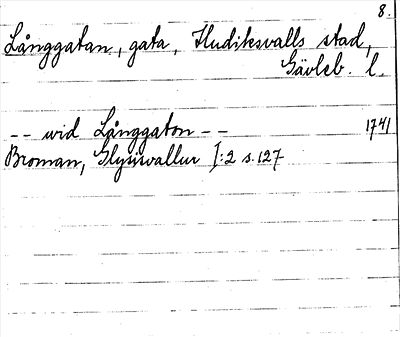 8.
Långgatan, gata, Hudiksvalls stad,
Gävleb. l.
-- wid Långgaton -- 1741
Broman, Glysisvallur I:2 s. 127